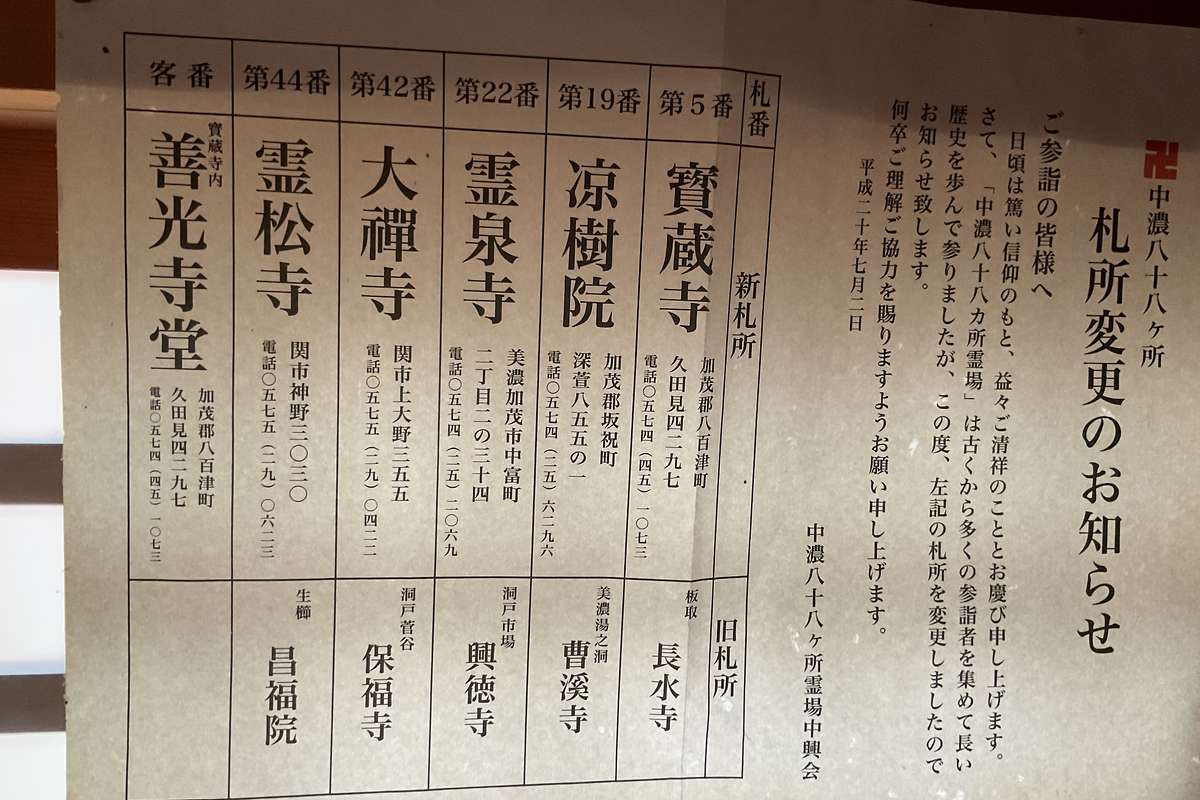 卍 中濃八十八ヶ所
札所変更のお知らせ
ご参詣の皆様へ
日頃は篤い信仰のもと、益々ご清祥のこととお慶び申し上げます。
さて、「中濃八十八カ所霊場」は古くから多くの参詣者を集めて長い
歴史を歩んで参りましたが、この度、左記の札所を変更しましたので
お知らせ致します。
何卒ご理解ご協力を賜りますようお願い申し上げます。
平成二十年七月二日
中濃八十八ヶ所霊場中興会
札番
新札所
旧札所
第5番
寶蔵寺
加茂郡八百津町
久田見四二九七
電話〇五七四(四五)一〇七三
板取
長水寺
第19番
凉樹院
加茂郡坂祝町
深萱八五五の一
電話〇五七四(二五)六二九六
美濃湯之洞
曹溪寺
第22番
霊泉寺
美濃加茂市中富町
二丁目二の三十四
電話〇五七四(二五)二〇六九
洞戸市場
興徳寺
第42番
大禪寺
関市上大野三五五
電話〇五七五(二九)〇四二二
洞戸菅谷
保福寺
第44番
霊松寺
関市神野三〇三〇
電話〇五七五(二九)〇六二三
生櫛
昌福院
客番
寶蔵寺内
善光寺堂
加茂郡八百津町
久田見四二九七
電話〇五七四(四五)一〇七三